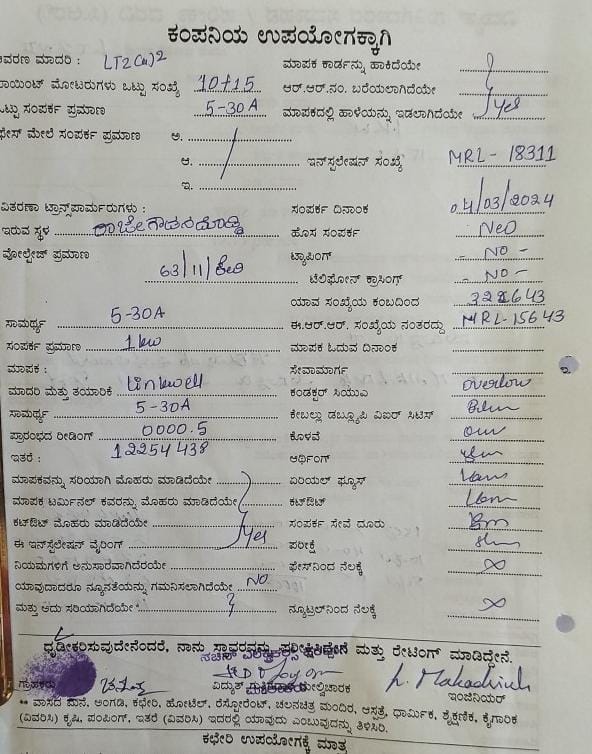 ಕಂಪನಿಯ ಉಪಯೋಗಕ್ಕಾಗಿ
ಆವರಣ ಮಾದರಿ : LT2(a)2
ಮಾಪಕ ಕಾರ್ಡನ್ನು ಹಾಕಿದೆಯೇ
ಪಾಯಿಂಟ್ ಮೋಟರುಗಳು ಒಟ್ಟು ಸಂಖ್ಯೆ 10+15
ಆರ್.ಆರ್.ನಂ. ಬರೆಯಲಾಗಿದೆಯೇ
ಒಟ್ಟು ಸಂಪರ್ಕ ಪ್ರಮಾಣ 5-30A
ಮಾಪಕದಲ್ಲಿ ಹಾಳೆಯನ್ನು ಇಡಲಾಗಿದೆಯೇ Yes
ಫೇಸ್ ಮೇಲೆ ಸಂಪರ್ಕ ಪ್ರಮಾಣ ಅ.
ಆ. ಇನ್‌ಸ್ಟಲೇಷನ್ ಸಂಖ್ಯೆ MRL-18311
ಇ.
ವಿತರಣಾ ಟ್ರಾನ್ಸ್‌ಪಾರ್ಮರುಗಳು :
ಸಂಪರ್ಕ ದಿನಾಂಕ 04/03/2024
ಇರುವ ಸ್ಥಳ
ಹೊಸ ಸಂಪರ್ಕ NeO
ವೋಲ್ಟೇಜ್ ಪ್ರಮಾಣ 63/11/ಕೆವಿ
ಟ್ಯಾಪಿಂಗ್ - NO -
ಟೆಲಿಫೋನ್ ಕ್ರಾಸಿಂಗ್ - NO -
ಯಾವ ಸಂಖ್ಯೆಯ ಕಂಬದಿಂದ
ಸಾಮರ್ಥ್ಯ 5-30A
ಈ.ಆರ್.ಆರ್. ಸಂಖ್ಯೆಯ ನಂತರದ್ದು MRL-15643
ಸಂಪರ್ಕ ಪ್ರಮಾಣ 1kw
ಮಾಪಕ ಓದುವ ದಿನಾಂಕ
ಮಾಪಕ :
ಸೇವಾಮಾರ್ಗ
ಮಾದರಿ ಮತ್ತು ತಯಾರಿಕೆ
ಕಂಡಕ್ಟರ್ ಸಿಯುಎ
ಸಾಮರ್ಥ್ಯ 5-30A
ಕೇಬಲ್ಲು ಡಬ್ಲ್ಯೂಪಿ ವಿಐರ್ ಸಿಟಿಸ್
ಪ್ರಾರಂಭದ ರೀಡಿಂಗ್ 0000.5
ಕೊಳವೆ
ಇತರೆ : 12254438
ಆರ್ಥಿಂಗ್
ಮಾಪಕವನ್ನು ಸರಿಯಾಗಿ ಮೊಹರು ಮಾಡಿದೆಯೇ
ಏರಿಯಲ್ ಫ್ಯೂಸ್
ಮಾಪಕ ಟರ್ಮಿನಲ್ ಕವರನ್ನು ಮೊಹರು ಮಾಡಿದೆಯೇ
ಕಟ್‌ಔಟ್
ಕಟ್‌ಔಟ್ ಮೊಹರು ಮಾಡಿದೆಯೇ
ಸಂಪರ್ಕ ಸೇವೆ ದೂರು
ಈ ಇನ್‌ಸ್ಟಲೇಷನ್ ವೈರಿಂಗ್ Yes
ಪರೀಕ್ಷೆ
ನಿಯಮಗಳಿಗೆ ಅನುಸಾರವಾಗಿದೆರಯೇ
ಫೇಸ್‌ನಿಂದ ನೆಲಕ್ಕೆ ∞
ಯಾವುದಾದರೂ ನ್ಯೂನತೆಯನ್ನು ಗಮನಿಸಲಾಗಿದೆಯೇ NO
ಮತ್ತು ಅದು ಸರಿಯಾಗಿದೆಯೇ
ನ್ಯೂಟ್ರಲ್‌ನಿಂದ ನೆಲಕ್ಕೆ ∞
ಧೃಡೀಕರಿಸುವುದೇನೆಂದರೆ, ನಾನು ಸ್ಥಾವರವನ್ನು ಪರೀಕ್ಷಿಸಿದ್ದೇನೆ ಮತ್ತು ರೇಟಿಂಗ್ ಮಾಡಿದ್ದೇನೆ.
ಗ್ರಾಹಕರು
ವಿದ್ಯುತ್ ಮೇಲ್ವಿಚಾರಕ
ಇಂಜಿನಿಯರ್
** ವಾಸದ ಮನೆ, ಅಂಗಡಿ, ಕಛೇರಿ, ಹೋಟೆಲ್, ರೆಸ್ಟೋರೆಂಟ್, ಚಲನಚಿತ್ರ ಮಂದಿರ, ಆಸ್ಪತ್ರೆ, ಧಾರ್ಮಿಕ, ಶೈಕ್ಷಣಿಕ, ಕೈಗಾರಿಕ
(ವಿವರಿಸಿ) ಕೃಷಿ, ಪಂಪಿಂಗ್, ಇತರೆ (ವಿವರಿಸಿ) ಇದರಲ್ಲಿ ಯಾವುದು ಎಂಬುವನ್ನು ತಿಳಿಸಿರಿ.
ಕಛೇರಿ ಉಪಯೋಗಕ್ಕೆ ಮಾತ್ರ